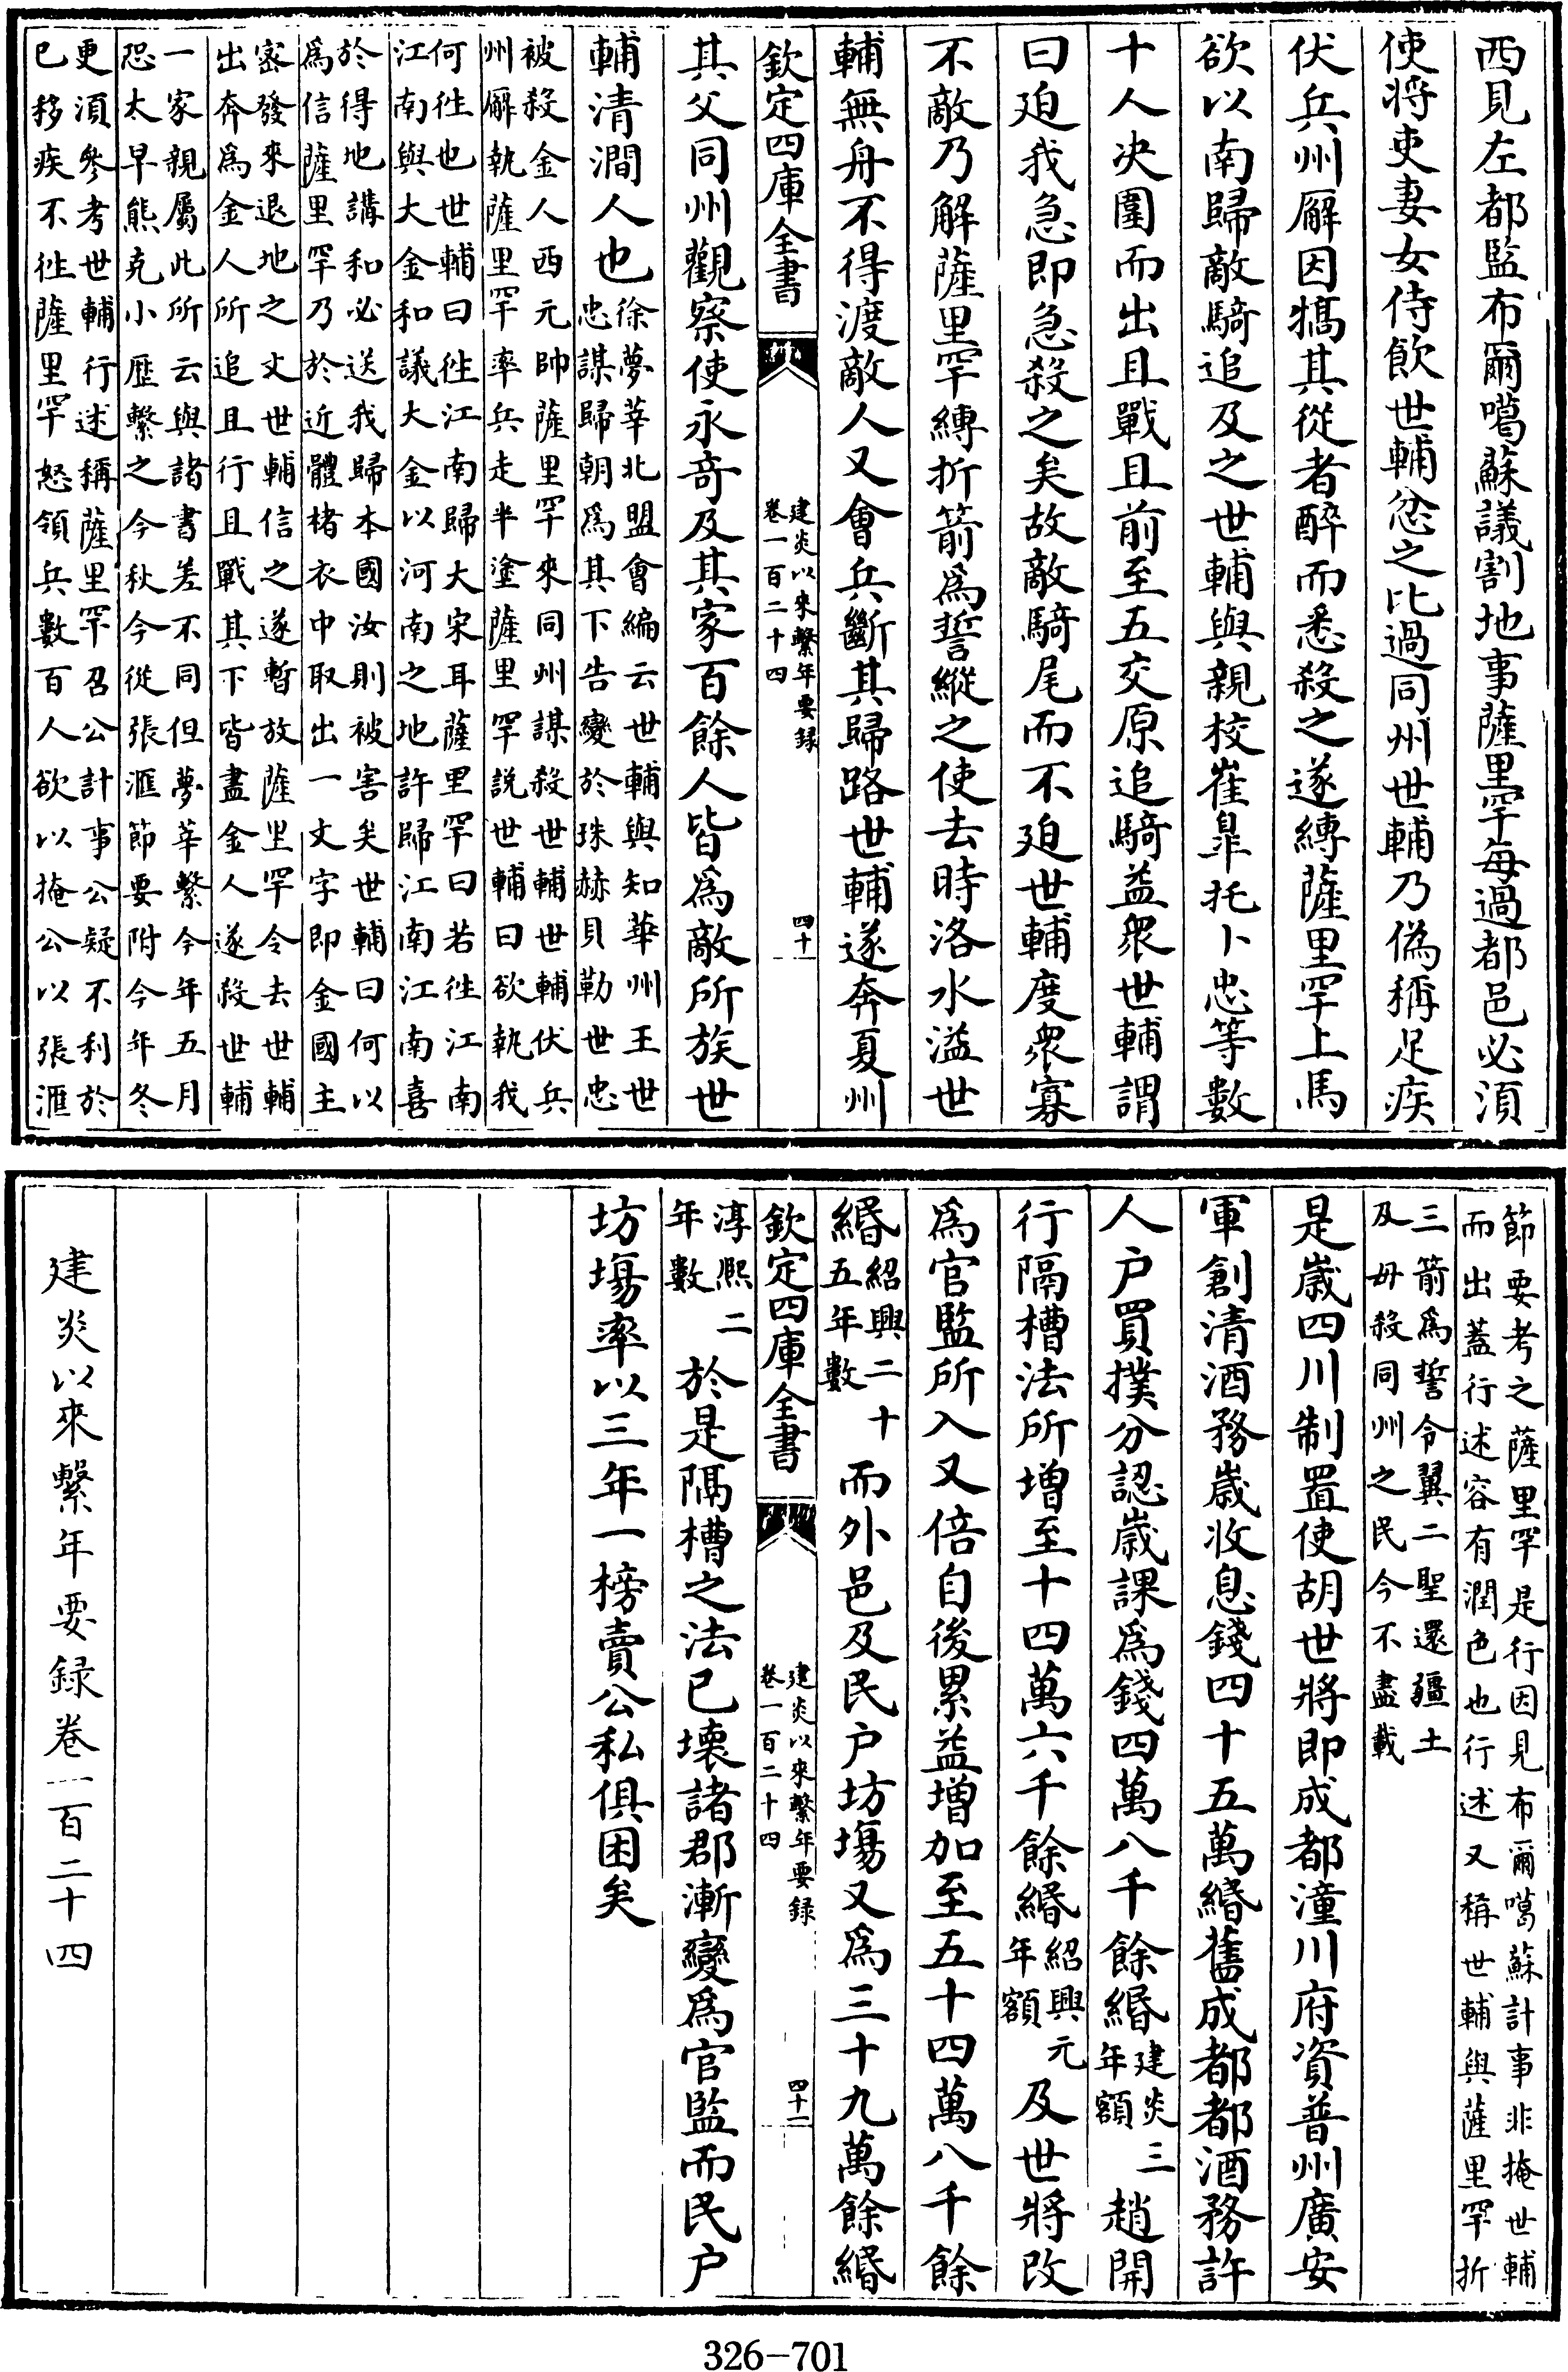 西見左都監布爾噶蘇議割地事薩里罕每過都邑必湏
使将吏妻女侍飲世輔忿之比過同州世輔乃偽稱足疾
伏兵州廨因犒其從者醉而悉殺之遂縛薩里罕上馬
欲以南歸敵騎追及之世輔與親校崔臯托卜忠等數
十人决圍而出且戰且前至五交原追騎益衆世輔謂
曰廹我急即急殺之矣故敵騎尾而不廹世輔度衆寡
不敵乃解薩里罕縛折箭爲誓縱之使去時洛水溢世
輔無舟不得渡敵人又會兵斷其歸路世輔遂奔夏州
欽定四庫全書
建炎以來繫年要録
卷一百二十四
四十
其父同州觀察使永奇及其家百餘人皆爲敵所族世
輔清澗人也
徐夢莘北盟會編云世輔與知華州王世
忠謀歸朝爲其下告變於珠赫貝勒世忠
被殺金人西元帥薩里罕來同州謀殺世輔世輔伏兵
州廨執薩里罕率兵走半塗薩里罕説世輔曰欲執我
何徃也世輔曰徃江南歸大宋耳薩里罕曰若徃江南
江南與大金和議大金以河南之地許歸江南江南喜
於得地講和必送我歸本國汝則被害矣世輔曰何以
爲信薩里罕乃於近體楮衣中取出一文字即金國主
宻發來退地之文世輔信之遂暫放薩里罕令去世輔
出奔爲金人所追且行且戰其下皆盡金人遂殺世輔
一家親屬此所云與諸書差不同但夢莘繫今年五月
恐太早熊克小歴繫之今秋今從張滙節要附今年冬
更湏參考世輔行述稱薩里罕召公計事公疑不利於
已移疾不徃薩里罕怒領兵數百人欲以掩公以張滙
節要考之薩里罕是行因見布爾噶蘇計事非掩世輔
而出葢行述容有潤色也行述又稱世輔與薩里罕折
三箭爲誓令翼二聖還疆土
及毋殺同州之民今不盡載
是嵗四川制置使胡世將即成都潼川府資普州廣安
軍創清酒務嵗收息錢四十五萬緡舊成都都酒務許
人户買撲分認嵗課爲錢四萬八千餘緡
建炎三
年額
趙開
行隔槽法所增至十四萬六千餘緡
紹興元
年額
及世將改
爲官監所入又倍自後累益增加至五十四萬八千餘
緡
紹興二十
五年數
而外邑及民户坊塲又爲三十九萬餘緡
欽定四庫全書
建炎以來繫年要録
卷一百二十四
四十一
淳熈二
年數
於是隔槽之法已壊諸郡漸變爲官監而民户
坊塲率以三年一榜賣公私俱困矣
建炎以來繫年要録卷一百二十四
326-701